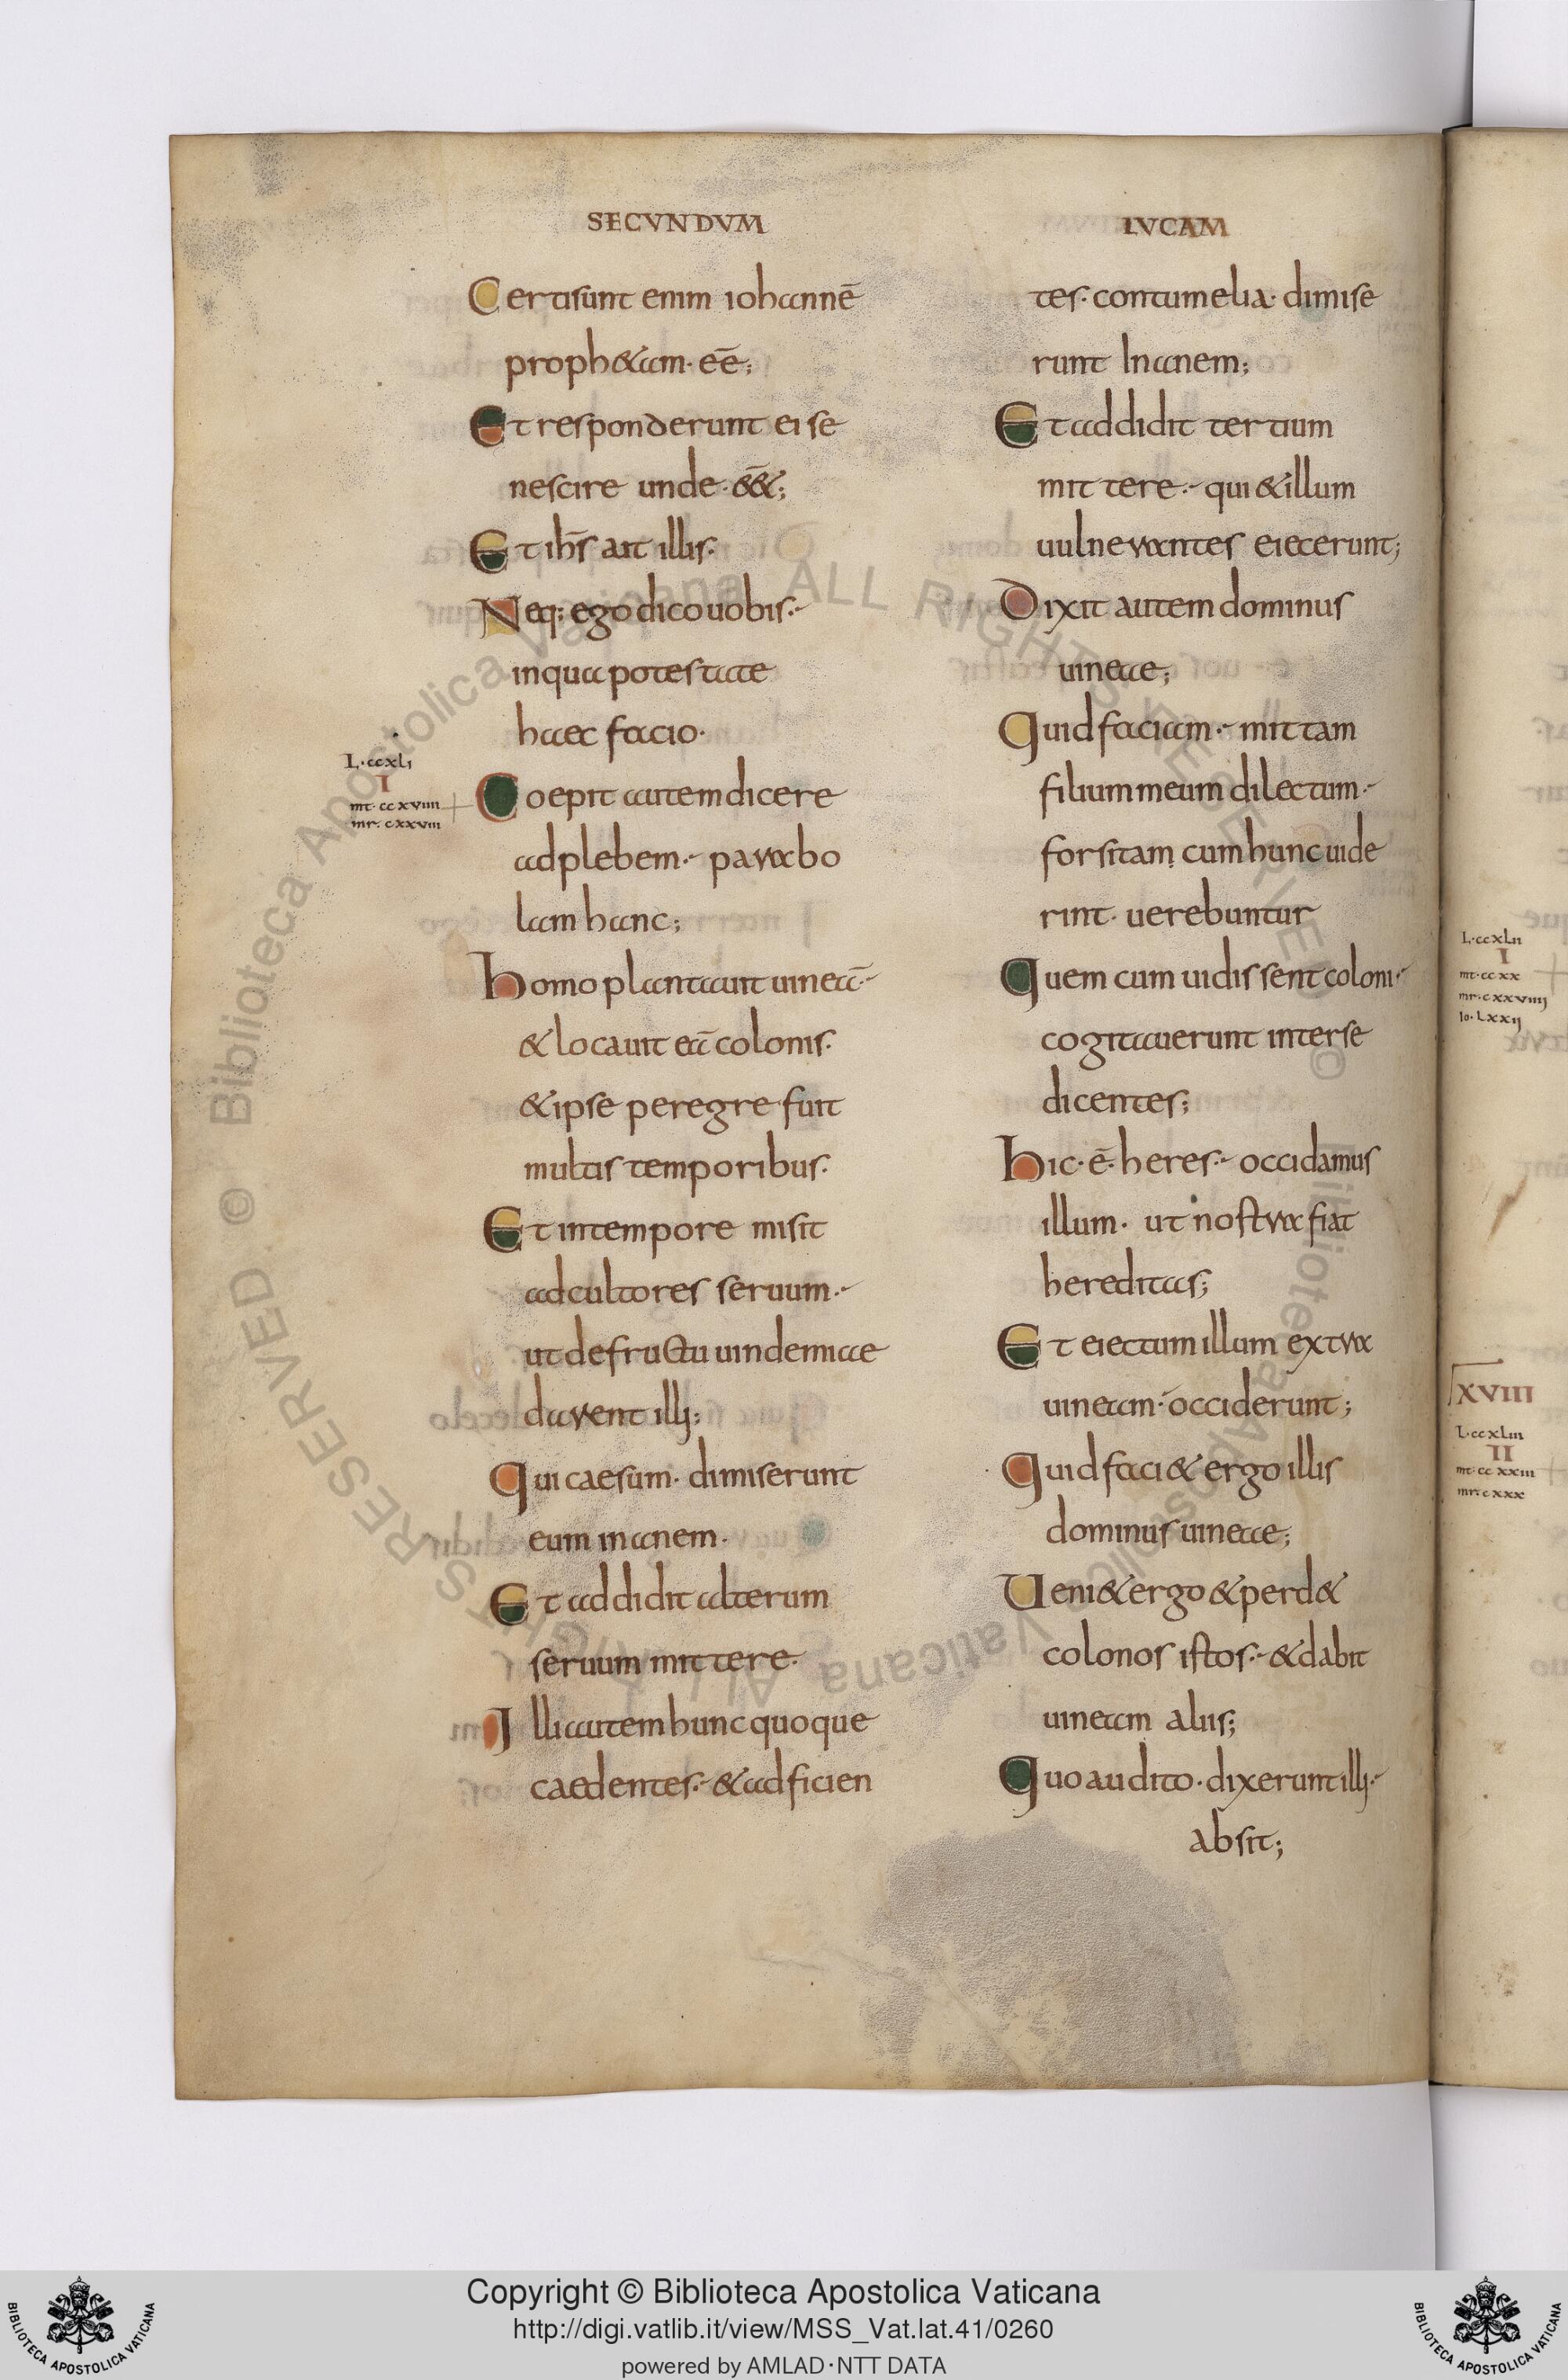 SECVNDVM
Certi sunt enim iohannē
proph&am· eē;
Et responderunt ei se
nescire unde·ēē&;
Et ih̄s ait illis·
Neq; ego dico uobis·
in qua potestate
haec facio·
L·ccxli
I
mt·ccxviiii
mr·cxxviii
Coepit autem dicere
ad plebem· parabo
lam hanc;
homo plantauit uineā·
& locauit eā colonis·
& ipse peregre fuit
multis temporibus·
Et in tempore misit
ad cultores seruum·
ut de fructu uindemiae
darent illi;
Qui caesum· dimiserunt
eum inanem·
Et addidit alterum
seruum mittere·
Illi autem hunc quoque
caedentes·& adficien
LVCAM
tes·contumelia·dimise
runt Inanem;
Et addidit tertium
mittere· qui & illum
uulnerantes eiecerunt;
Dixit autem dominus
uineae;
Quid faciam· mittam
filium meum dilectum·
forsitam cum hunc uide
rint· uerebuntur
Quem cum uidissent coloni·
cogitauerunt inter se
dicentes;
hic·ē·heres· occidamus
illum· ut nostra fiat
hereditas;
Et eiectum illum extra
uineam·occiderunt;
Quid faci& ergo illis
dominus uineae;
Ueni& ergo & perd&
colonos istos·& dabit
uineam aliis;
Quo audito·dixerunt illi·
absit;
L·ccxLii
I
mt·ccxx
mr·cxxviiij
Io·Lxxij
XVIII
L·ccxLiii
II
mt·ccxxiii
mr·cxxx
Copyright © Biblioteca Apostolica Vaticana
http://digi.vatlib.it/view/MSS_Vat.lat.41/0260
powered by AMLAD·NTT DATA
BIBLIOTECA APOSTOLICA VATICANA
BIBLIOTECA APOSTOLICA VATICANA